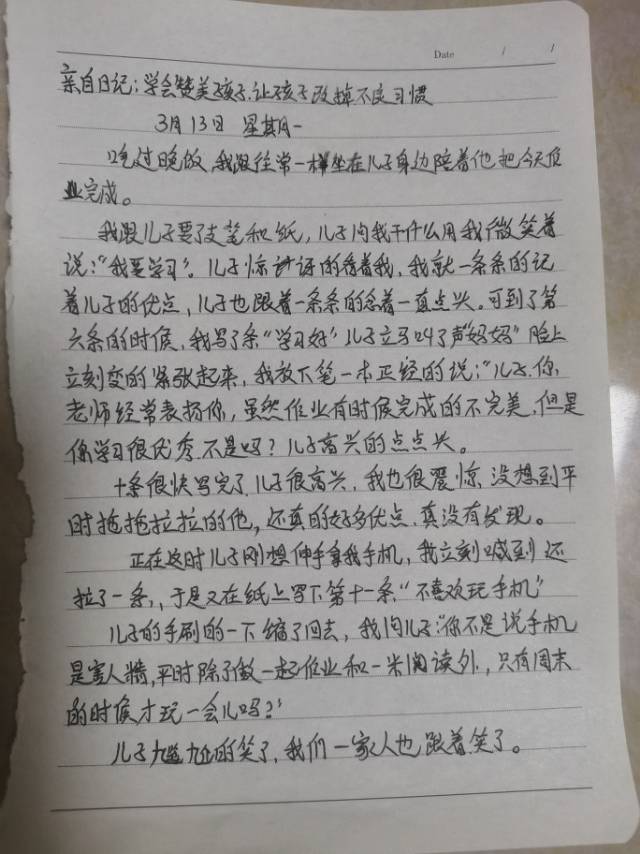 Date / /
亲自日记：学会赞美孩子，让孩子改掉不良习惯
3月13日 星期一
吃过晚饭，我跟往常一样坐在儿子身边陪着他把今天作
业完成。
我跟儿子要了支笔和纸，儿子问我干什么用我微笑着
说："我要学习"。儿子惊讶的看着我，我就一条条的记
着儿子的优点，儿子也跟着一条条的念着一直点头。可到了第
六条的时候，我写了条"学习好"儿子立马叫了声"妈妈"脸上
立刻变的紧张起来，我放下笔一本正经的说："儿子，你
老师经常表扬你，虽然作业有时候完成的不完美，但是
你学习很优秀，不是吗？儿子高兴的点点头。
十条很快写完了，儿子很高兴，我也很震惊，没想到平
时拖拖拉拉的他，还真的好多优点，真没有发现。
正在这时儿子刚想伸手拿我手机，我立刻喊到还
拉了一条，于是又在纸上写下第十一条"不喜欢玩手机"
儿子的手刷的一下缩了回去，我问儿子："你不是说手机
是害人精，平时除了做一起作业和一米阅读外，只有周末
的时候才玩一会儿吗？"
儿子尴尬的笑了，我们一家人也跟着笑了。